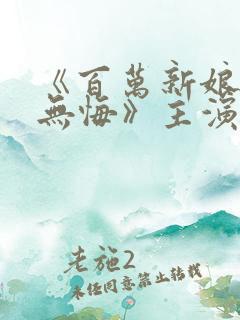 《百萬新娘
無悔》主演
老施2
未任同意禁止转载